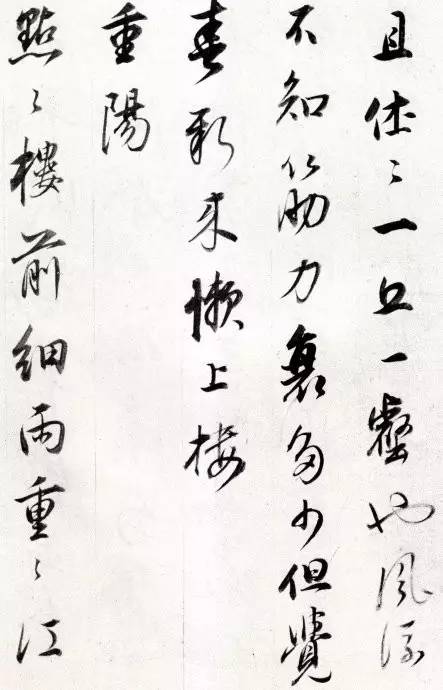 且休〻一丘一壑也風流
不知筋力衰多少但覺
春新來懶上樓
重陽
點〻樓前細雨重〻江